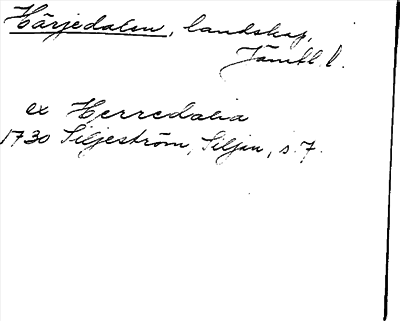 Härjedalen, landskap,
Jämtl. l.
ex Herredalia
1730 Siljeström, Siljan, s. 7.